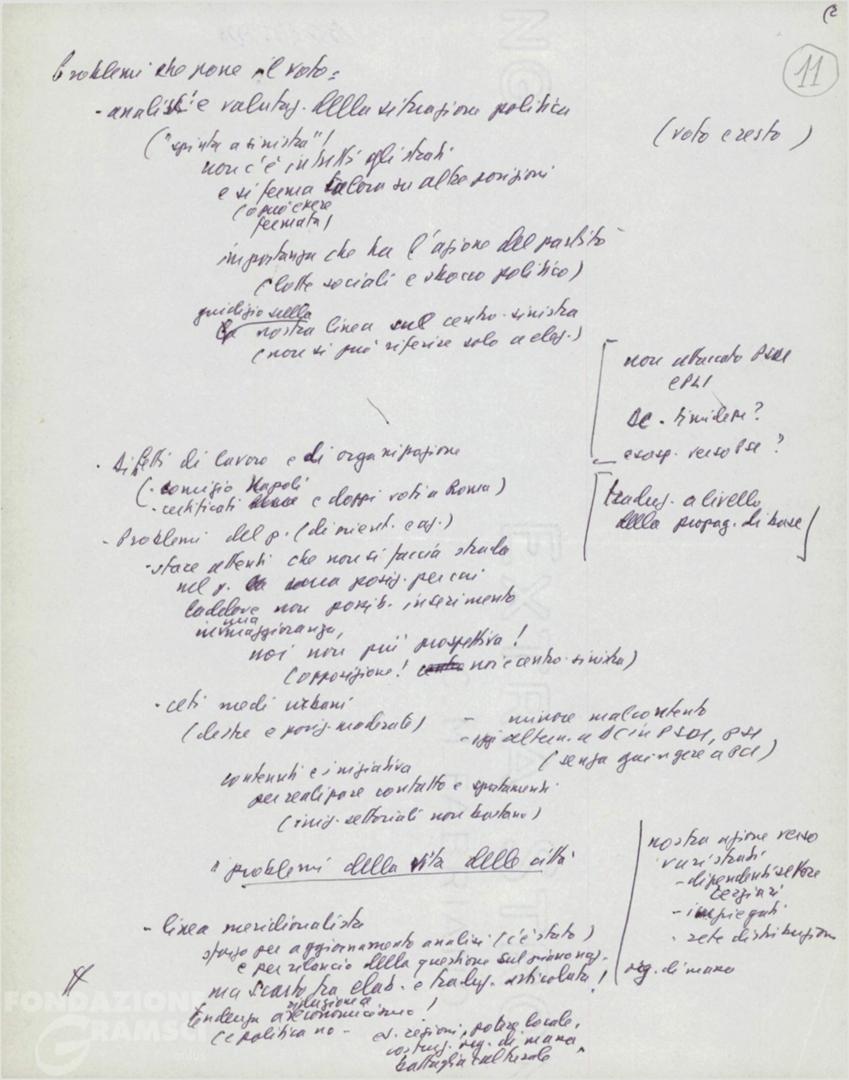 (2
11
Problemi che pone il voto:
- analisi e valutaz. della situazione politica
(voto e resto)
("spinta a sinistra"!
non c'è in tutti gli strati
e si ferma talora su altre posizioni
(o può essere
fermata)
importanza che ha l'azione del partito
(lotte sociali e sbocco politico)
giudizio sulla
nostra linea sul centro-sinistra
(non si può riferire solo a elez.)
non attaccato PSDI
e PLI
DC - timidezze?
esasp. verso PSI?
- difetti di lavoro e di organizzazione
(- comizio Napoli
- certificati e doppi voti a Roma)
traduz. a livello
della propag. di base
- Problemi del p. (di orient. ecc.)
- stare attenti che non si faccia strada
nel p. una posiz. per cui
laddove non possib. inserimento
in una maggioranza,
noi non più prospettiva!
(opposizione! noi e centro-sinistra)
- ceti medi urbani
(destre e posiz. moderate)
- minore malcontento
- oggi altern. a DC in PSDI, PSI
(senza giungere a PCI)
contenuti e iniziativa
per realizzare contatto e spostamenti
(iniz. settoriali non bastano)
i problemi della vita delle città
nostra azione verso
vari strati
- dipendenti settore
terziari
- impiegati
- rete distribuzione
reg. di mano
- linea meridionalista
sforzo per aggiornamento analisi (c'è stato)
e per rilancio della questione sul piano naz.
ma scarto fra elab. e traduz. articolata!
tendenza a riduzione a
economicismo!
(e politica no - es. regioni, potere locale,
costruz. reg. di mano,
battaglia culturale
FONDAZIONE
GRAMSCI